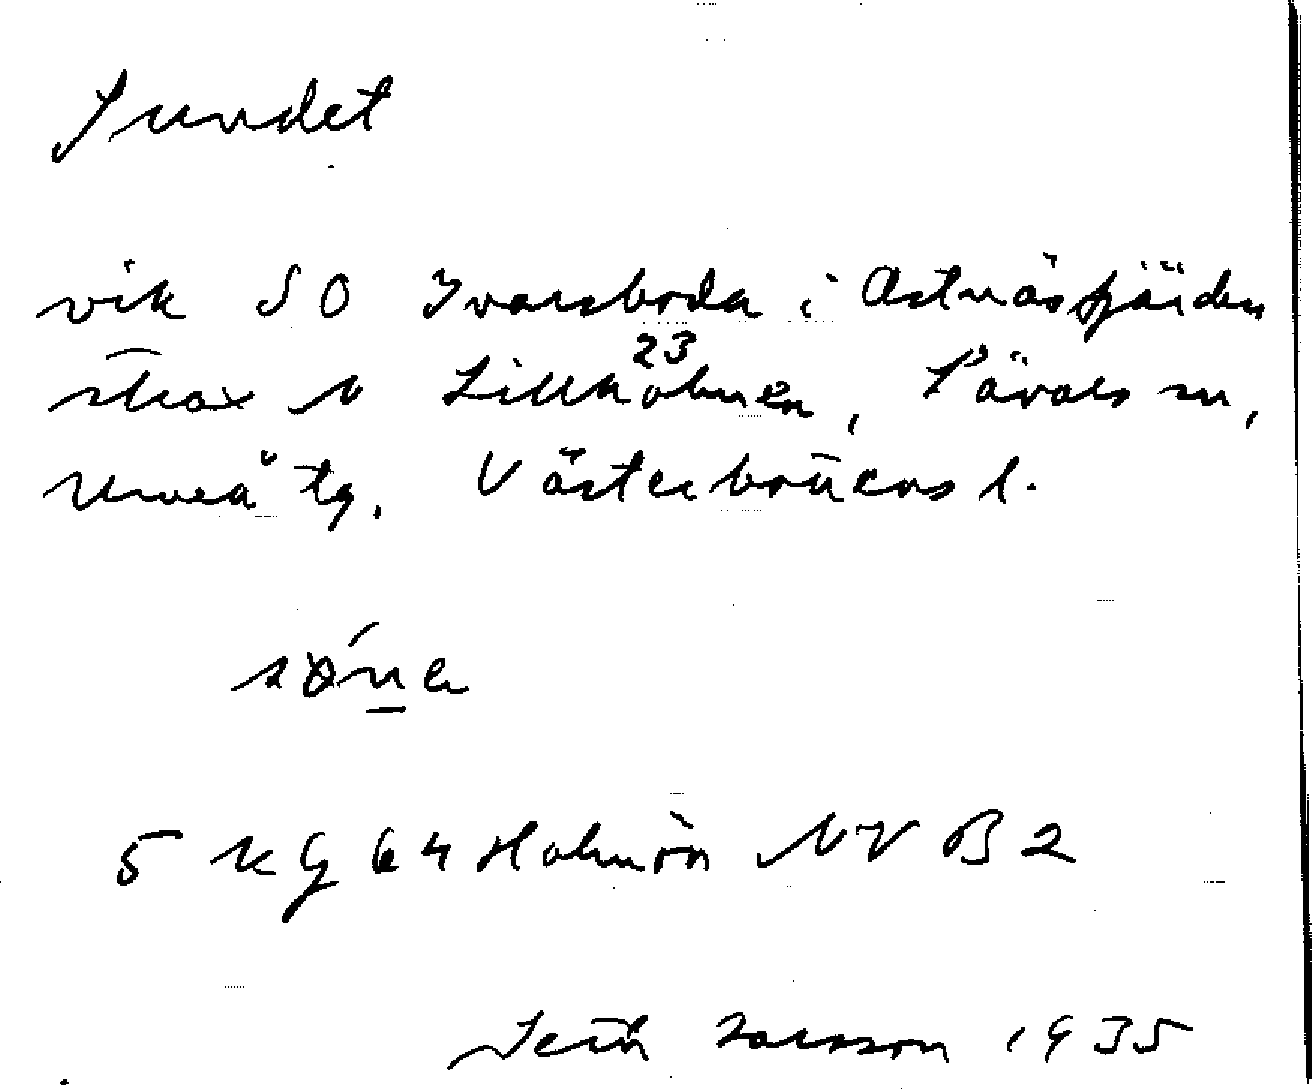 Sundet
vik SO Ivarsboda i Östnäsfjärden
strax N Lillholmen 23, Sävars sn,
Umeå tg. Västerbottens l.
5 KG 64 Holmön NV B2
Seth Larsson 1935